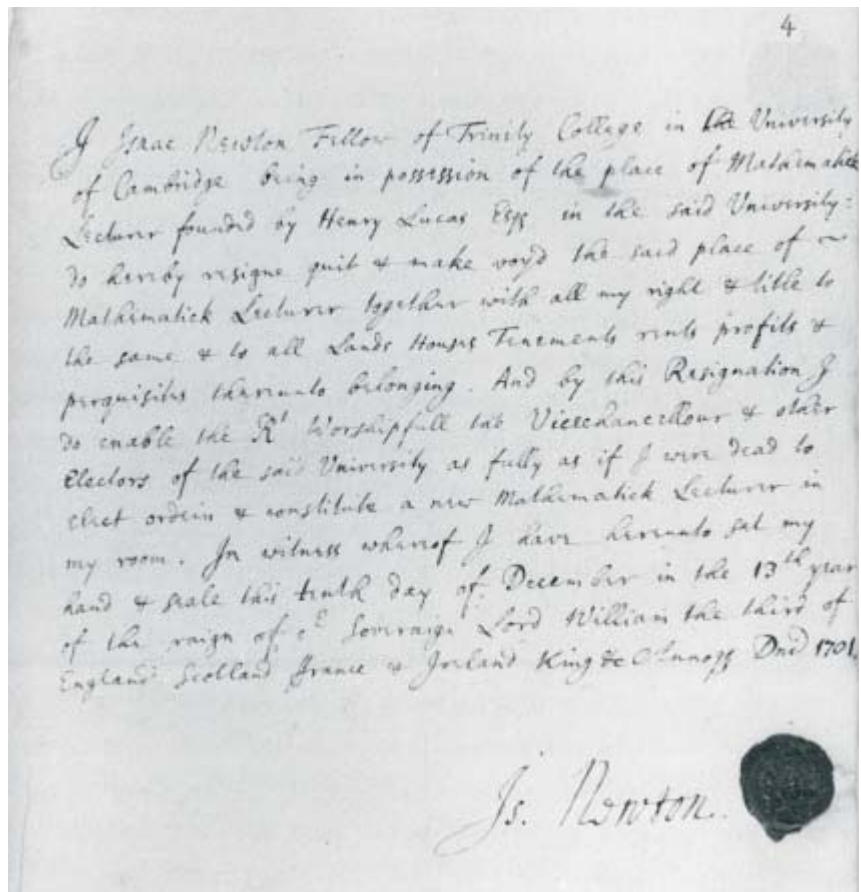 4
I Isaac Newton Fellow of Trinity College in the University
of Cambridge being in possession of the place of Mathematick
Lecturer founded by Henry Lucas Esqr in the said University:
do hereby resigne quit & make voyd the said place of ~
Mathematick Lecturer together with all my right & title to
the same & to all Lands Houses Tenements rents profits &
perquisites thereunto belonging. And by this Resignation I
do enable the Rt Worshipfull the Vicechancellour & other
Electors of the said University as fully as if I were dead to
elect ordein & constitute a new Mathematick Lecturer in
my room. In witness whereof I have hereunto set my
hand & seale this tenth day of December in the 13th year
of the raign of Soveraign Lord William the third of
England Scotland France & Ireland King &c Dni 1701.
Is. Newton.